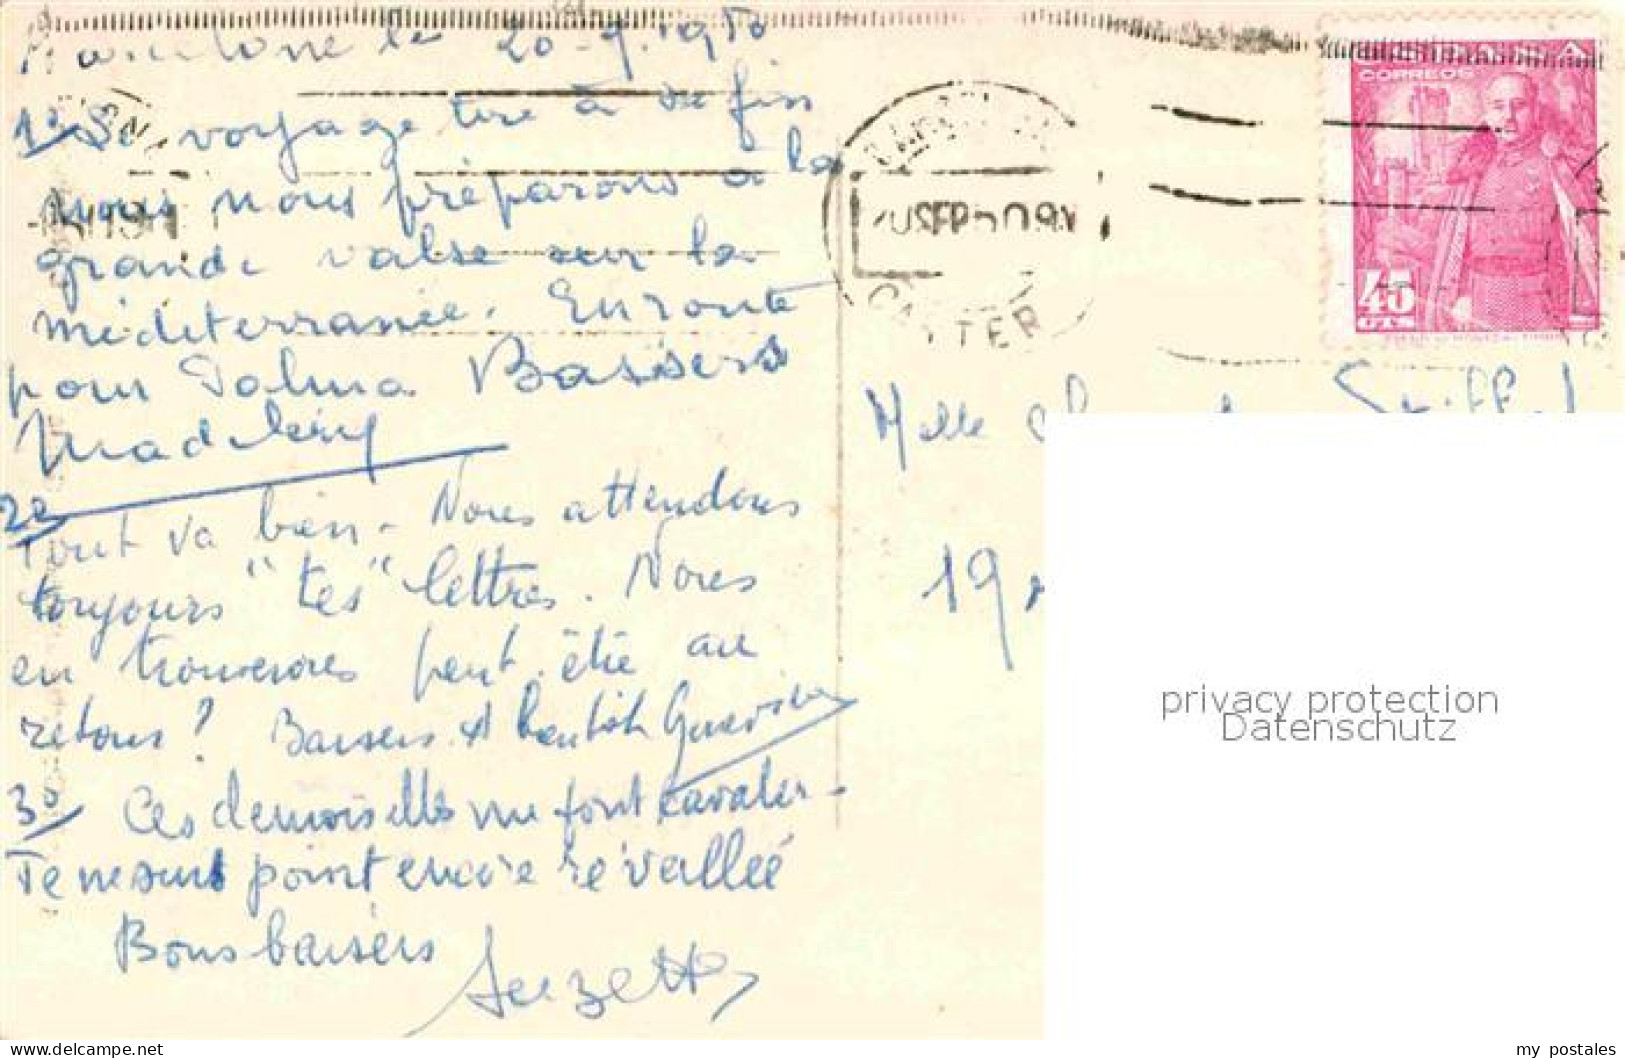 Barcelone le 20-9-1950
1º Le voyage tire à sa fin
nous nous préparons à la
grande valse sur la
méditerranée. En route
pour Palma Baisers
2º
Tout va bien - Nous attendons
toujours "tes" lettres. Nous
en trouverons peut-être au
retour? Baisers et à bientôt
3º Ces demoiselles me font cavaler -
Je ne suis point encore réveillée
Bons baisers
Suzette
CORREOS
45
CTS
20 SEP 50
Melle
19
privacy protection
Datenschutz
my postales